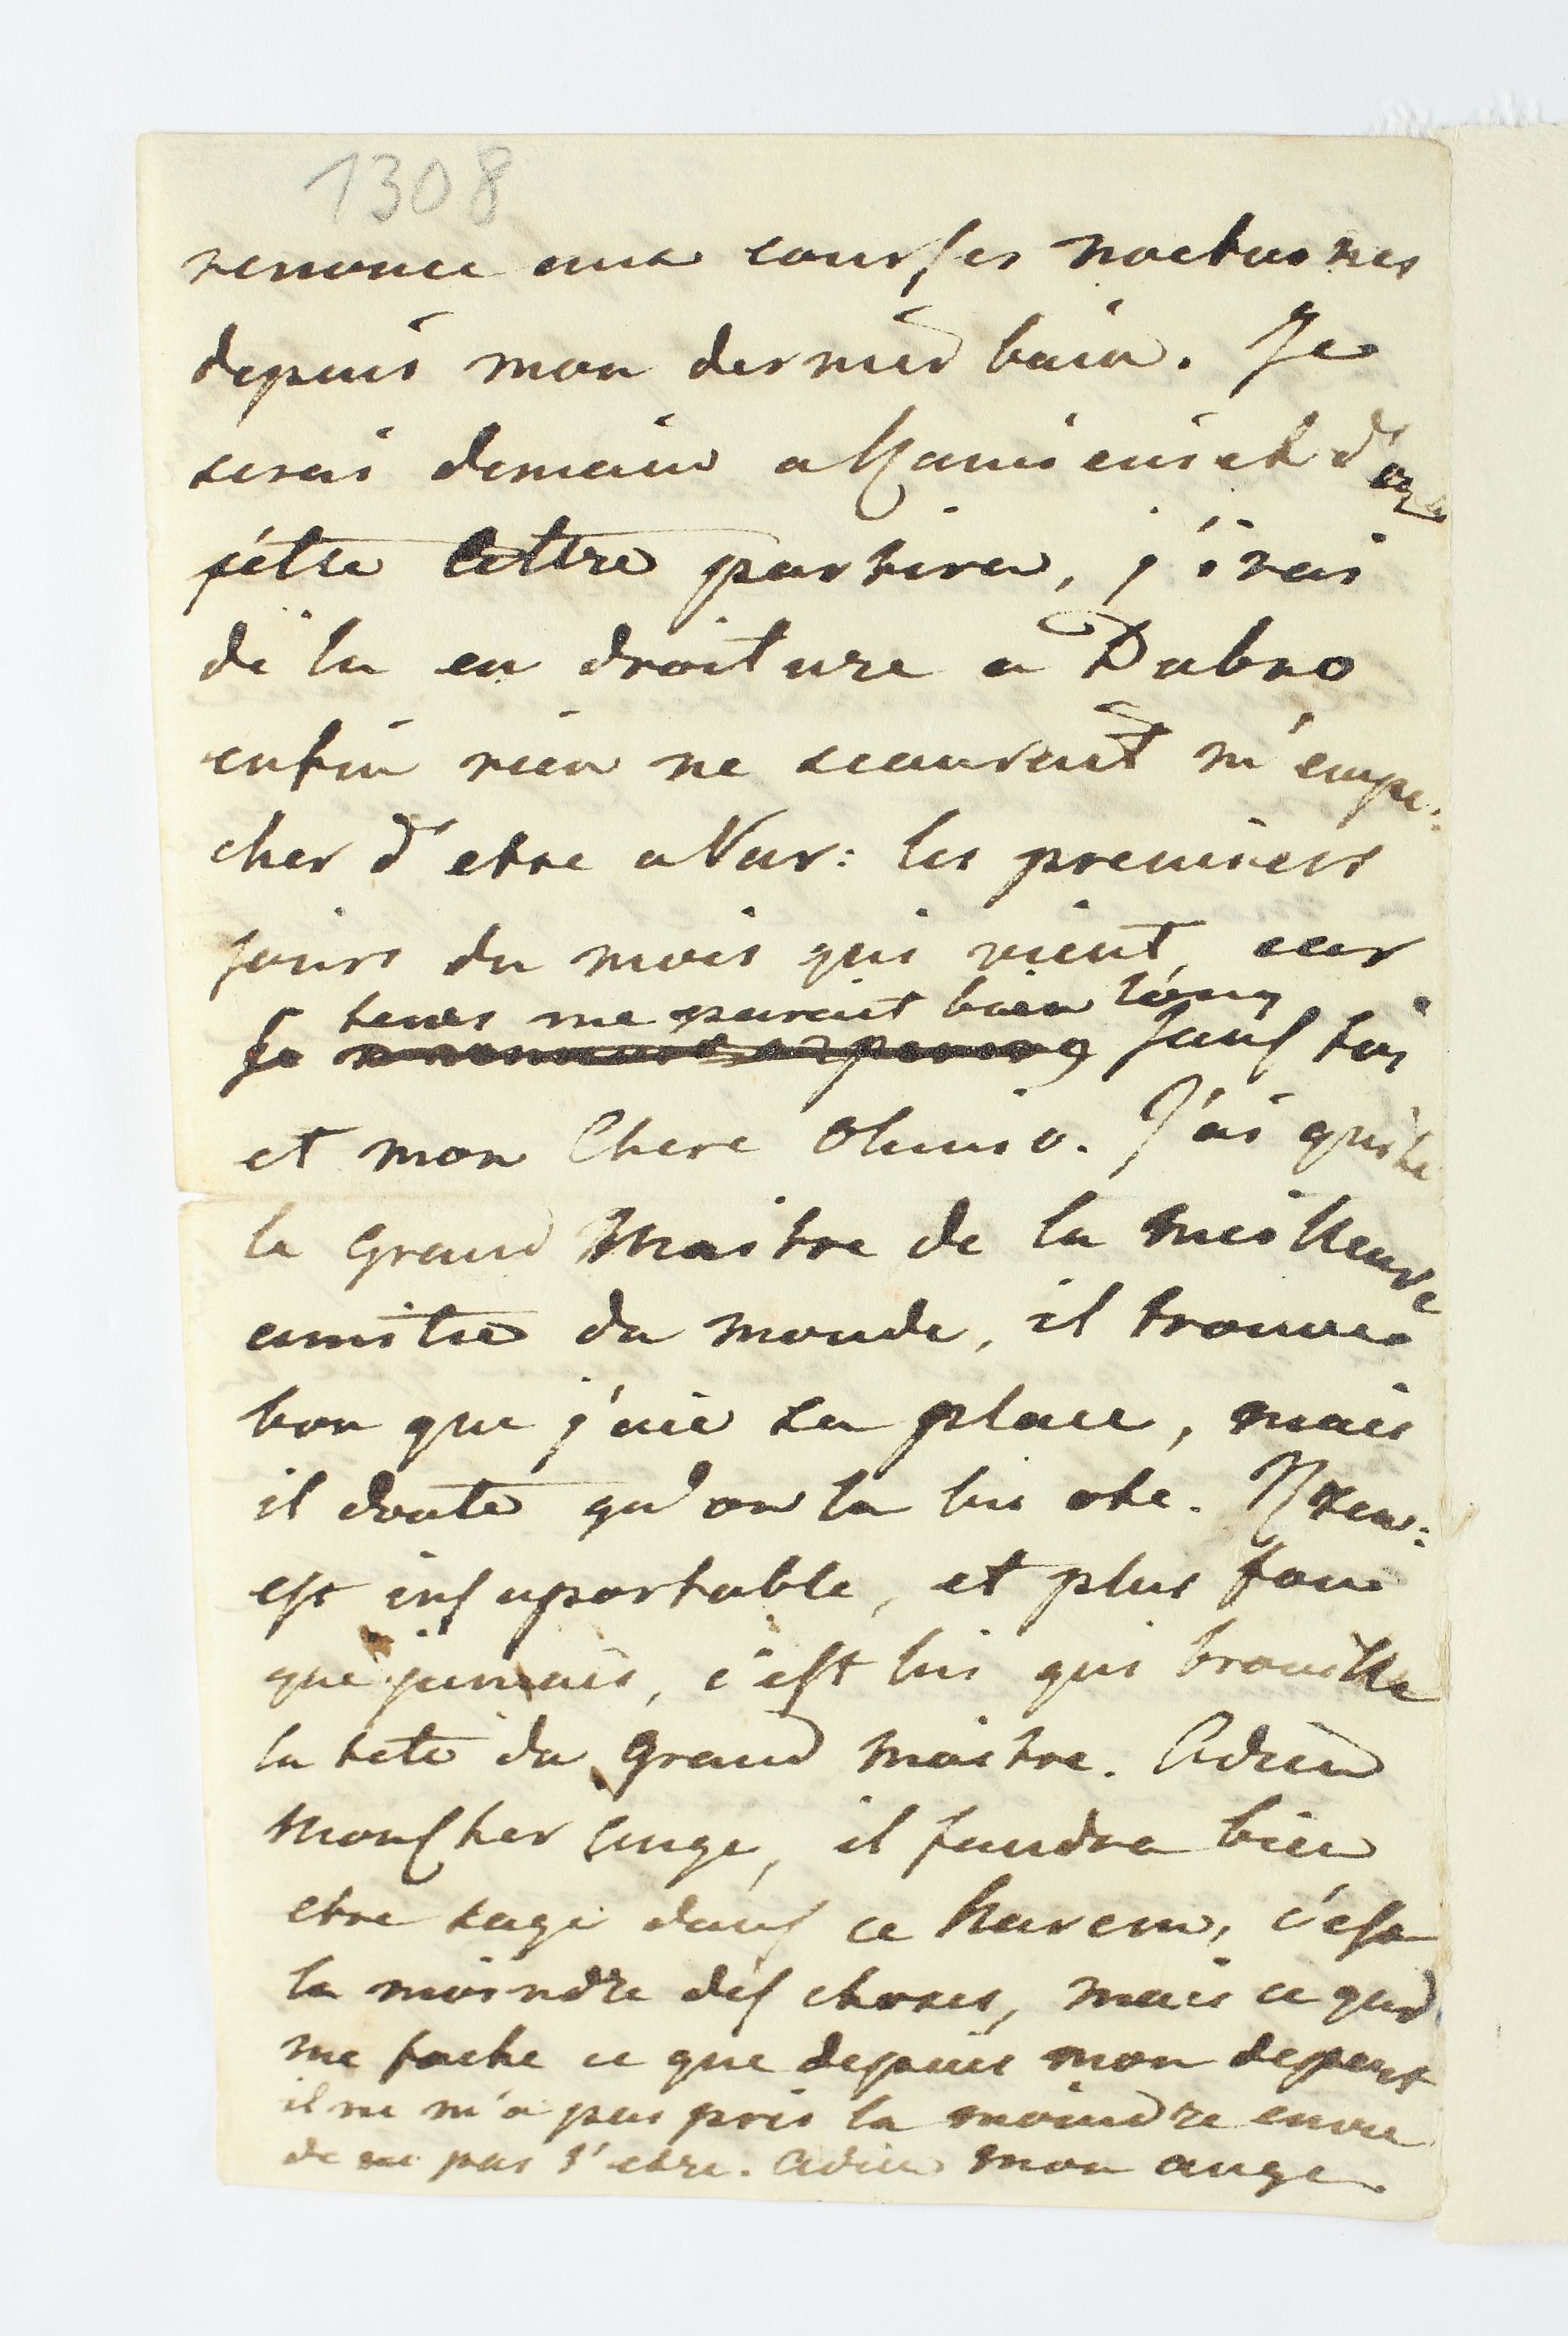 1308
renonce aux courses nocturnes
depuis mon dernier bain. Je
serai demain a Kamieniek d'ou
cette lettre partira, j'irai
de la en droiture a Dubno
enfin rien ne scaurait m'empe:
cher d'etre a Var: les premiers
jours du mois qui vient, car
le tems me parait bien long sans toi
et mon Chere Olunio. J'ai quite
le Grand Maitre de la meilleure
amitié du monde, il trouve
bon que j'aie sa place, mais
il doute qu'on la lui ote. Xaw:
est insuportable, et plus fou
que jamais, c'est lui qui brouille
la tete du grand maitre. Adieu
mon cher Ange, il faudra bien
etre sage dans ce harem, c'est
la moindre des choses, mais ce qui
me fache ce que depuis mon depart
il ne m'a pas pris la moindre envie
de ne pas l'etre. Adieu mon ange